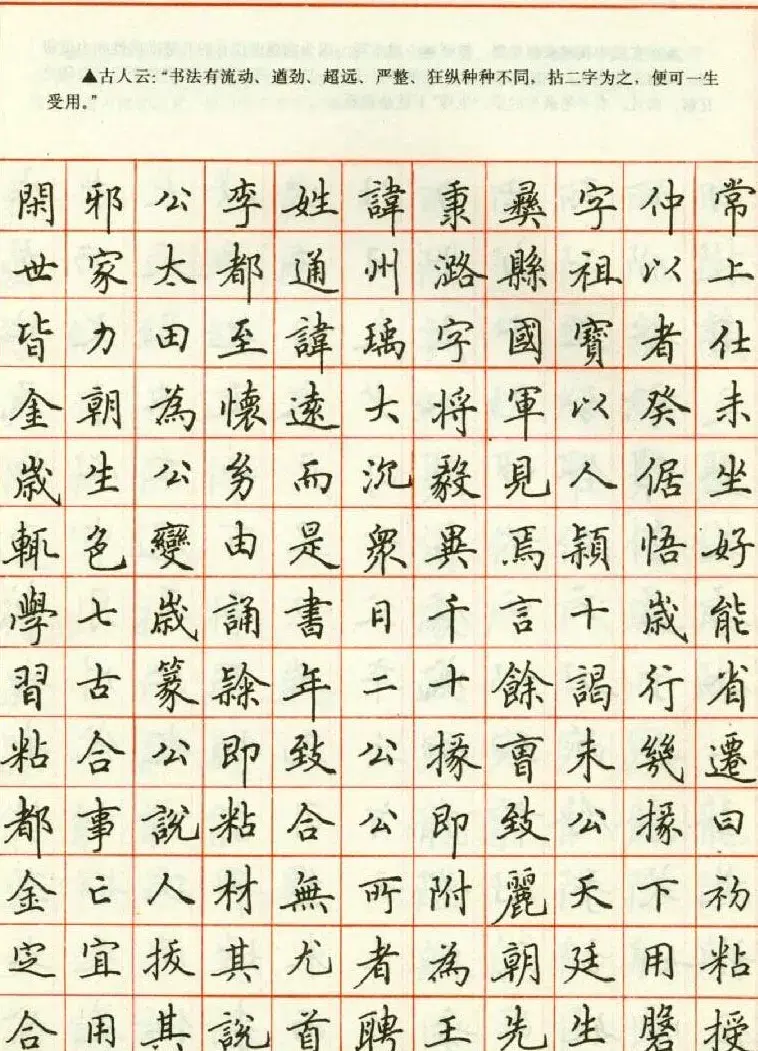 ▲古人云:“书法有流动、遒劲、超远、严整、狂纵种种不同，拈二字为之，便可一生
受用。”
閑邪公李姓諱秉彝字仲常
世家太都通州潞縣祖以上
皆力田至諱瑀字國寶者仕
金朝為懷遠大将軍以癸未
歲生公㓜而沉毅見人倨坐
輒色變由是衆異焉穎悟好
學七歲誦書日千言十歲能
習古篆隸年二十餘謁行省
粘合公即致公掾曹未幾遷
都事說粘合公即致公掾曰
金亡人材無所附麗天下初
定宜拔其尤者為朝廷用粘
合用其說首聘王先生磐授